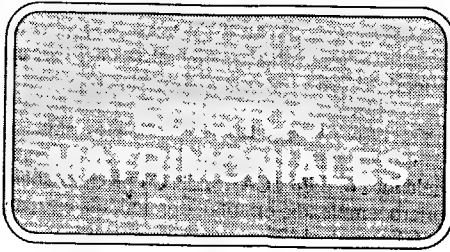 EDICTOS
MATRIMONIALES